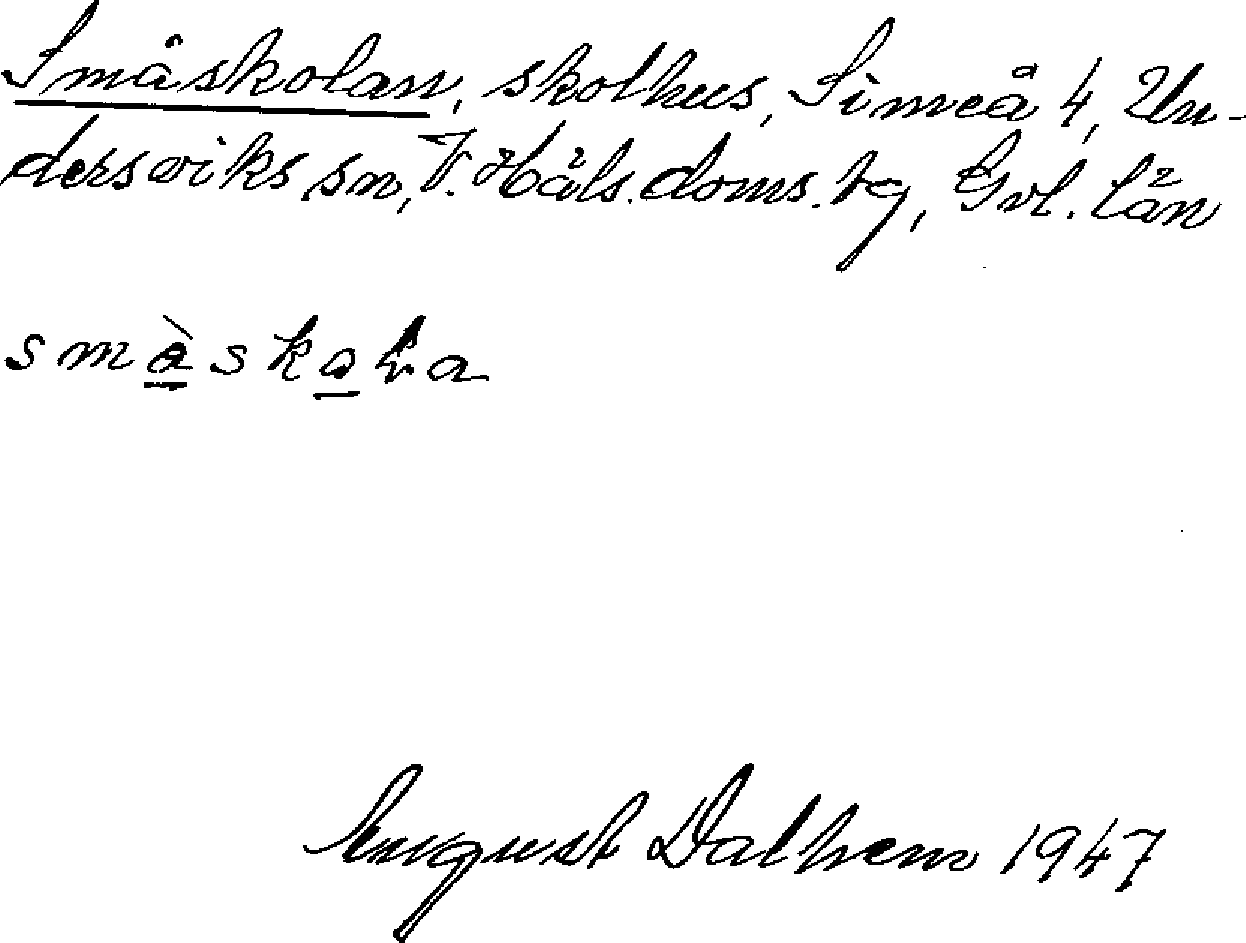 Småskolan, skolhus, Simeå 4, Un-
dersviks sn, V. Häls. doms. tg, Gvl. län
småskola
August Dalhem 1947